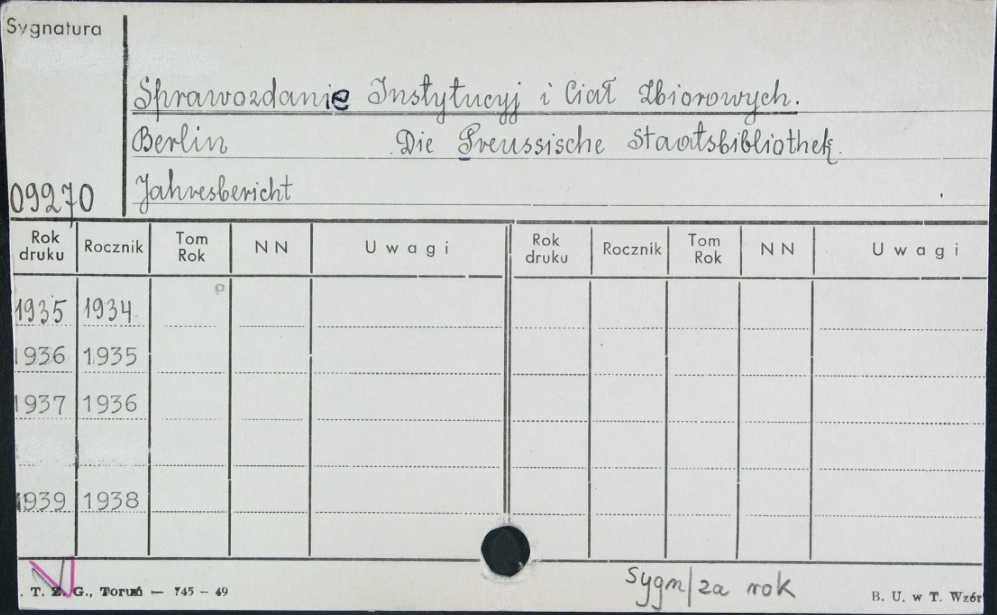 Sygnatura
Sprawozdanie Instytucyj i Ciał Zbiorowych.
Berlin Die Preussische Staatsbibliothek.
09270 Jahresbericht
Rok druku Rocznik Tom Rok NN Uwagi Rok druku Rocznik Tom Rok NN Uwagi
1935 1934
1936 1935
1937 1936
1939 1938
Sygn/za rok
. T. Z. G., Toruń — 745 – 49 B. U. w T. Wzór